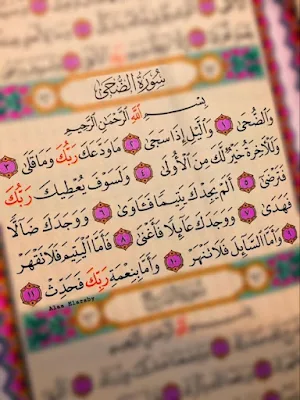 سُورَةُ الضُّحَىٰ
بِسْمِ اللَّهِ الرَّحْمَٰنِ الرَّحِيمِ
وَالضُّحَىٰ ١ وَاللَّيْلِ إِذَا سَجَىٰ ٢ مَا وَدَّعَكَ رَبُّكَ وَمَا قَلَىٰ ٣
وَلَلْآخِرَةُ خَيْرٌ لَّكَ مِنَ الْأُولَىٰ ٤ وَلَسَوْفَ يُعْطِيكَ رَبُّكَ
فَتَرْضَىٰ ٥ أَلَمْ يَجِدْكَ يَتِيمًا فَآوَىٰ ٦ وَوَجَدَكَ ضَالًّا
فَهَدَىٰ ٧ وَوَجَدَكَ عَائِلًا فَأَغْنَىٰ ٨ فَأَمَّا الْيَتِيمَ فَلَا تَقْهَرْ
٩ وَأَمَّا السَّائِلَ فَلَا تَنْهَرْ ١٠ وَأَمَّا بِنِعْمَةِ رَبِّكَ فَحَدِّثْ ١١
Alaa Elaraby